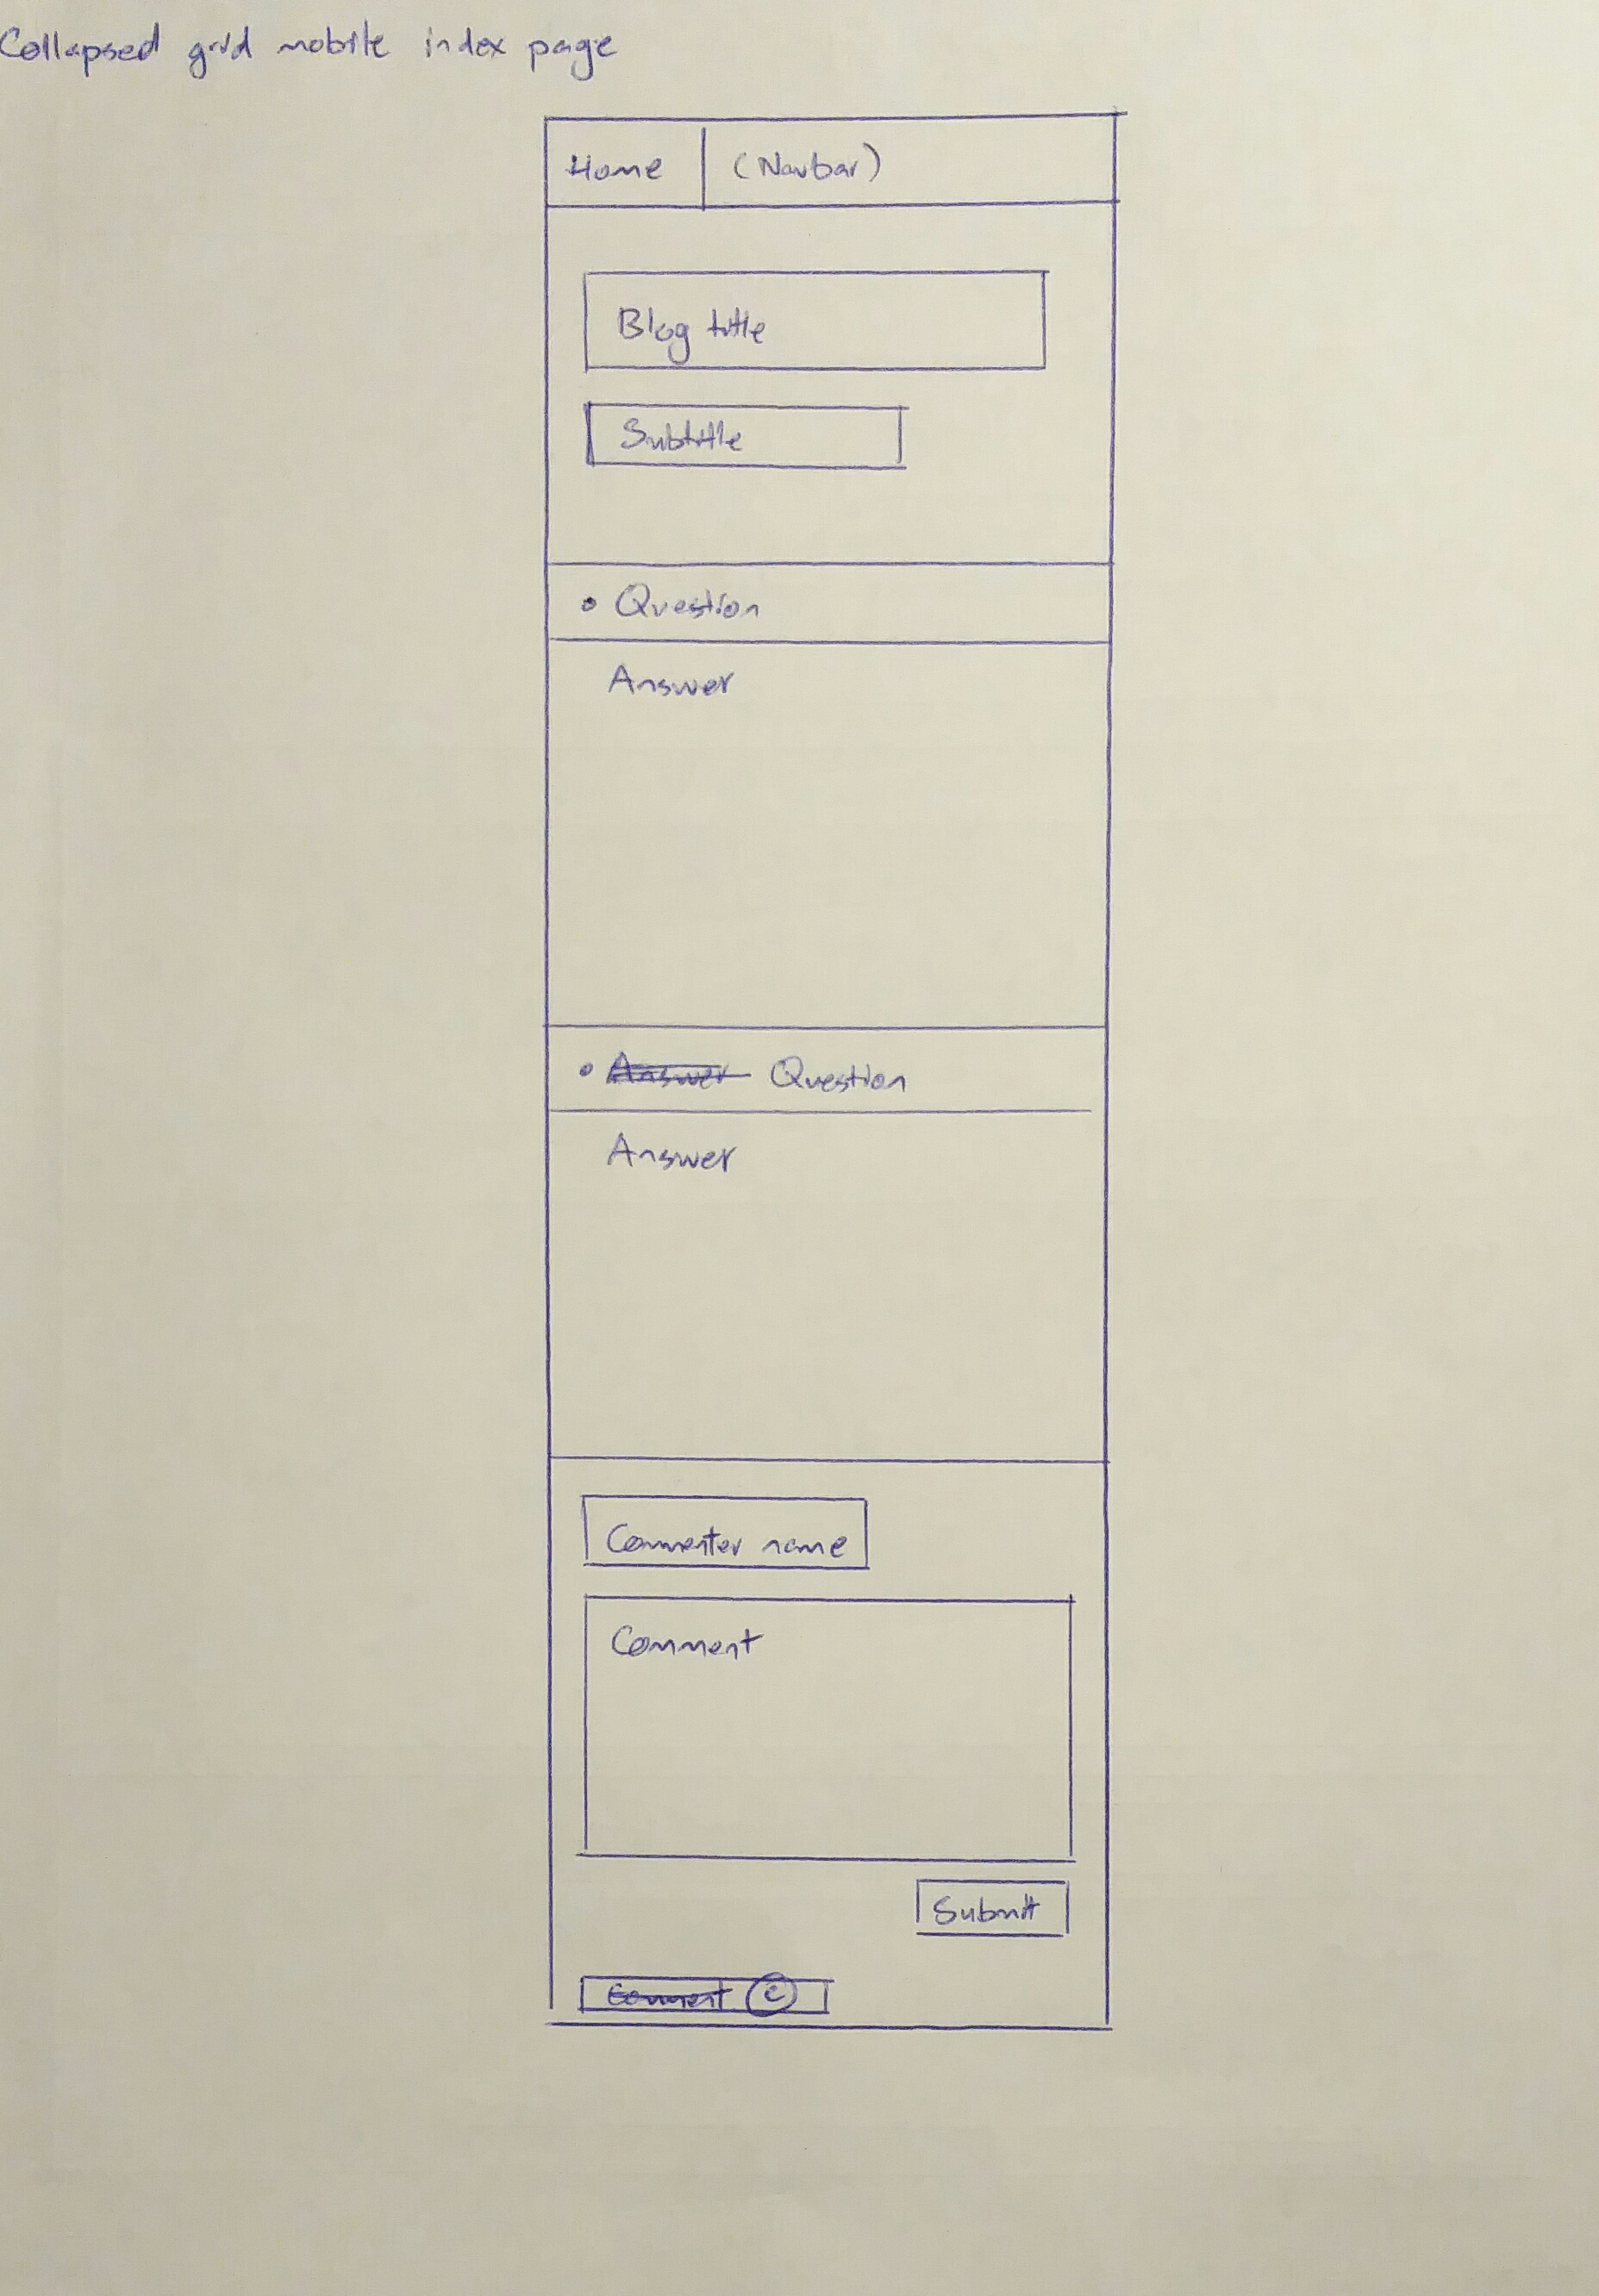 Collapsed grid mobile index page
Home (Navbar)
Blog title
Subtitle
• Question
Answer
• Answer Question
Answer
Commenter name
Comment
Submit
Comment ©